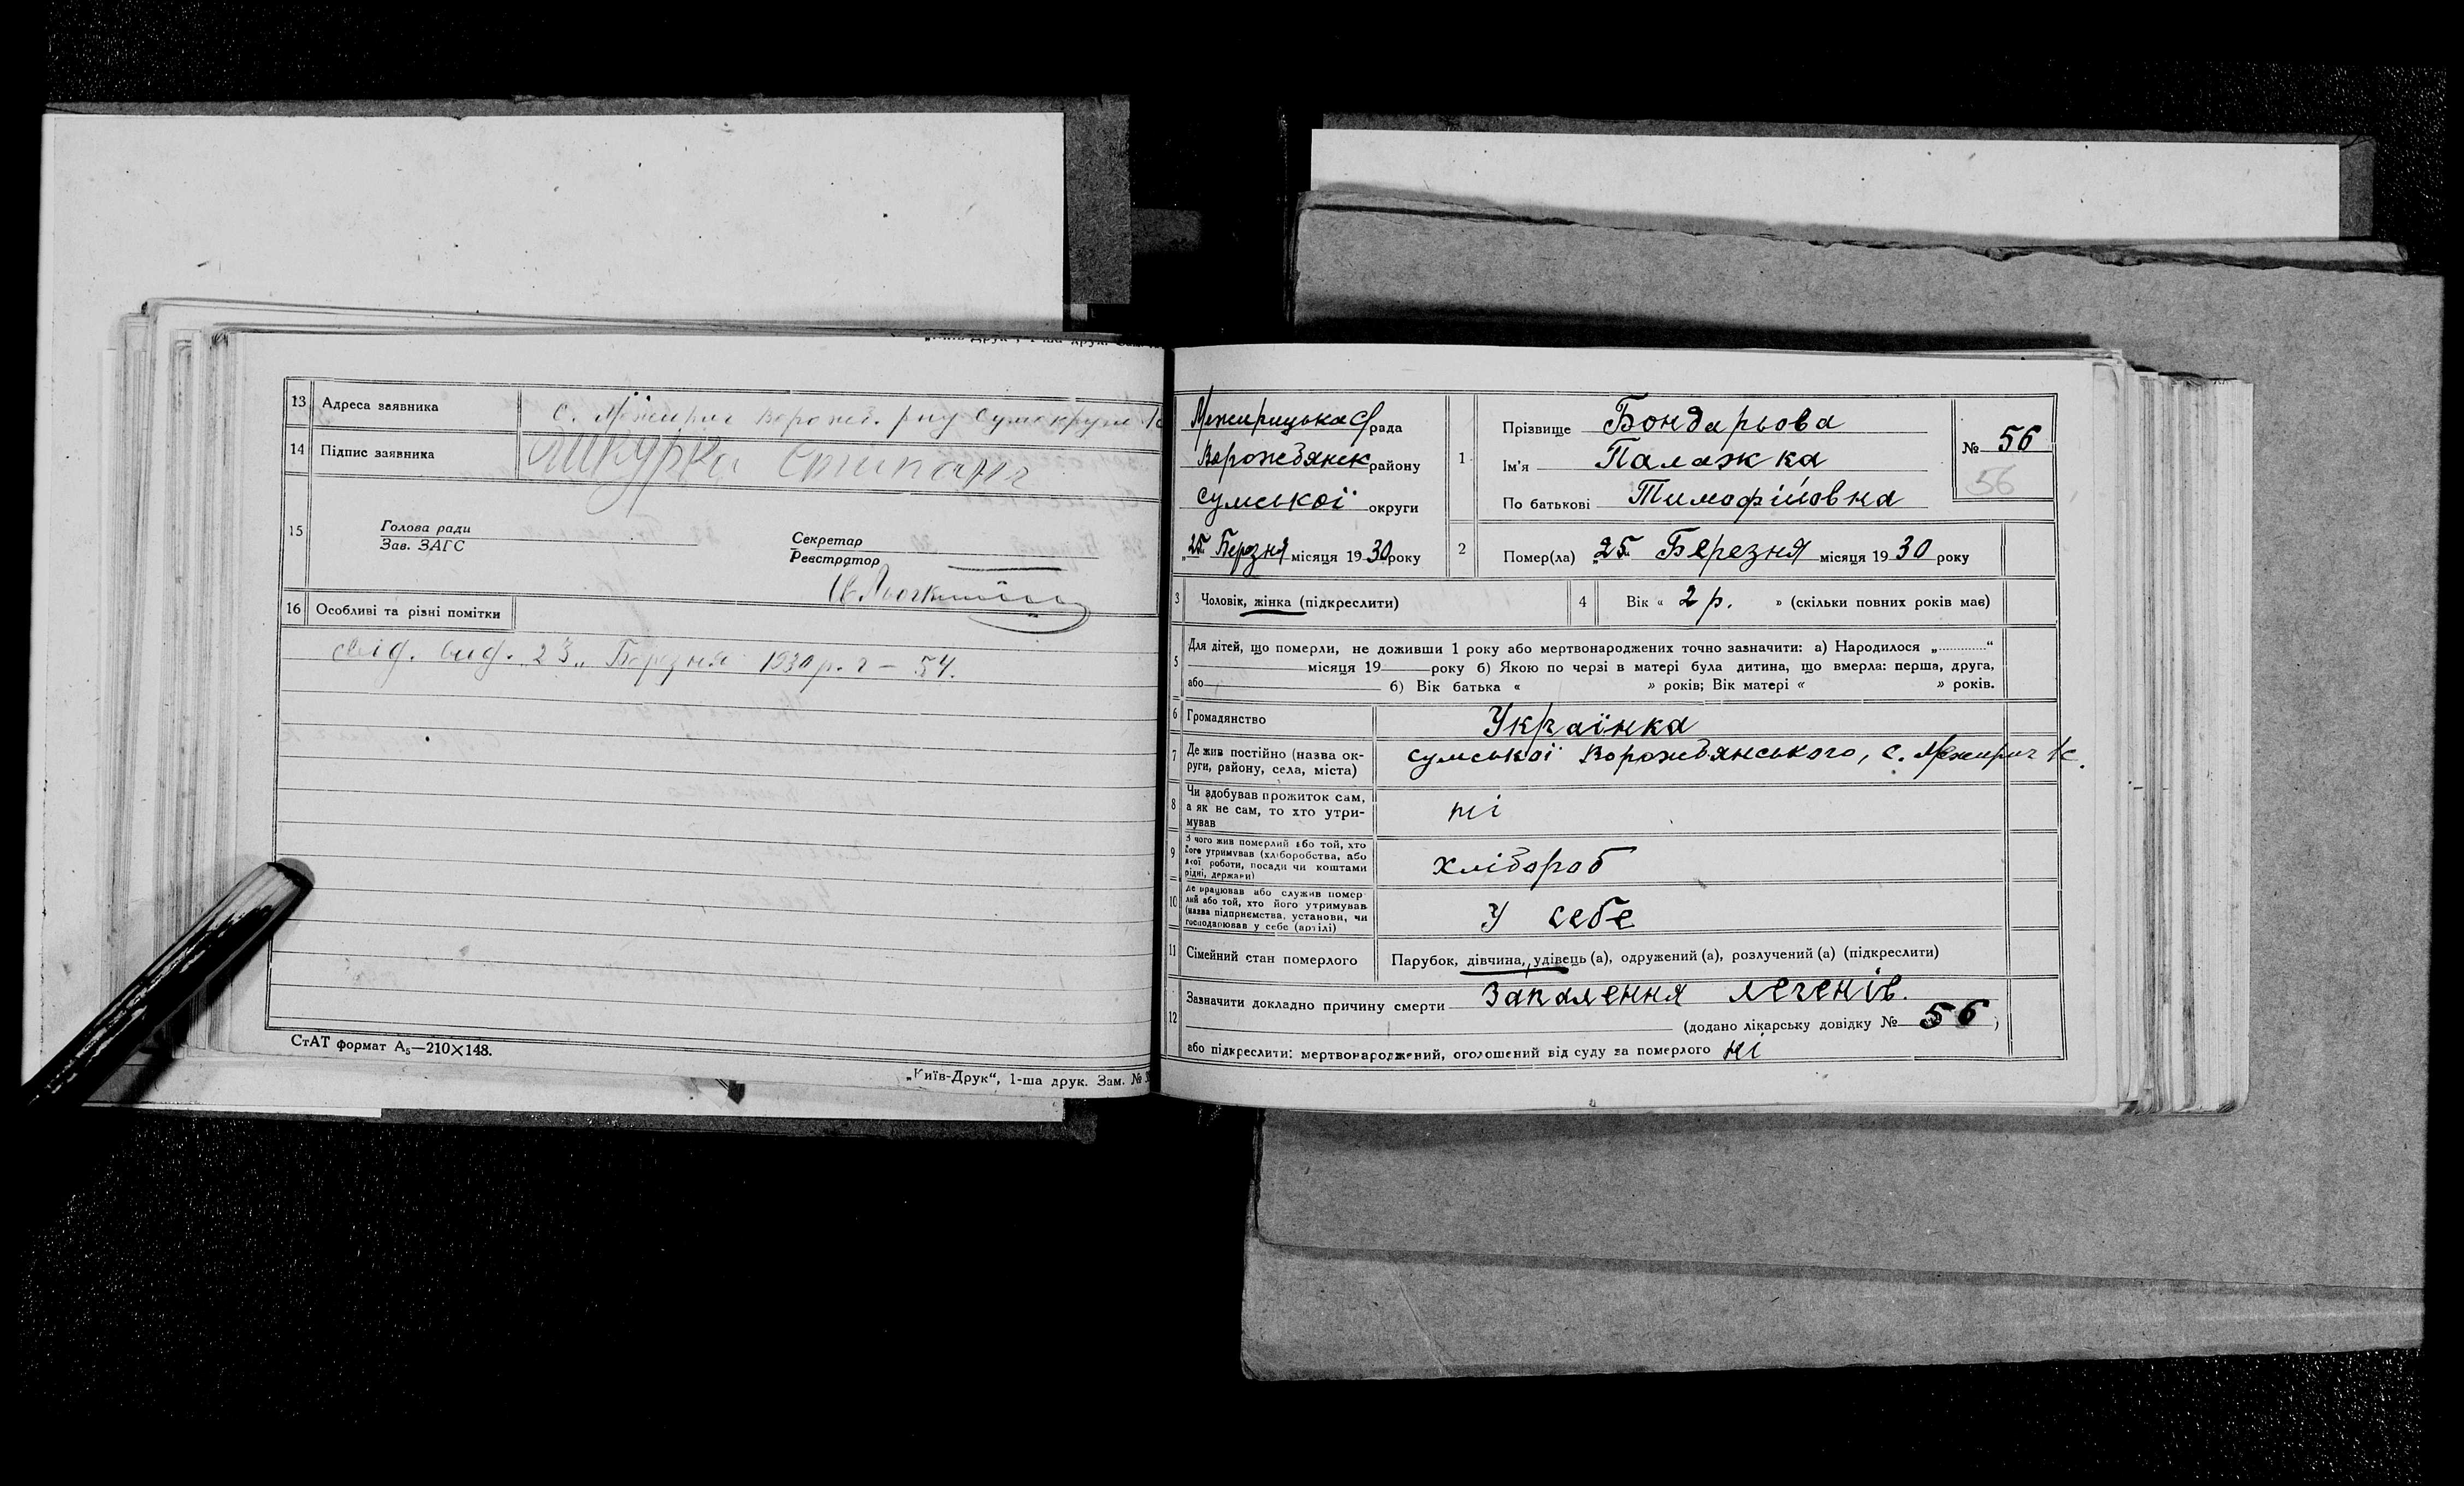 13 Адреса заявника с. Межирич Ворожб. р-ну Сумокруги
14 Підпис заявника Шкурка
15 Голова ради
Зав. ЗАГС
Секретар
Реєстратор
16 Особливі та різні помітки
Свід. вид. 23 „ Березня 1930 р. ч – 54.
СтАТ формат А₅—210×148.
„Київ-Друк“, 1-ша друк. Зам. №
Межирицька с/рада
Ворожбянськ району
Сумської округи
„25„ Березня місяця 1930 року
1 Прізвище Бондарьова
Ім'я Палажка
По батькові Тимофійовна
№ 56
56
2 Помер(ла) „25„ Березня місяця 1930 року
3 Чоловік, жінка (підкреслити)
4 Вік « 2 р. » (скільки повних років має)
5 Для дітей, що померли, не доживши 1 року або мертвонароджених точно зазначити: а) Народилося „............“
місяця 19 року б) Якою по черзі в матері була дитина, що вмерла: перша, друга,
або б) Вік батька « » років; Вік матері « » років.
6 Громадянство Українка
7 Де жив постійно (назва ок-
руги, району, села, міста) Сумської Ворожбянського, с. Межирич
8 Чи здобував прожиток сам,
а як не сам, то хто утри-
мував ні
9 З чого жив померлий або той, хто
його утримував (хліборобства, або
якої роботи, посади чи коштами
рідні, держави) хлібороб
10 Де працював або служив помер
лий або той, хто його утримував
(назва підприємства, установи, чи
господарював у себе (артілі) У себе
11 Сімейний стан померлого Парубок, дівчина, удівець (а), одружений (а), розлучений (а) (підкреслити)
12 Зазначити докладно причину смерти Запалення легенів.
(додано лікарську довідку № 56 )
або підкреслити: мертвонароджений, оголошений від суду за померлого ні